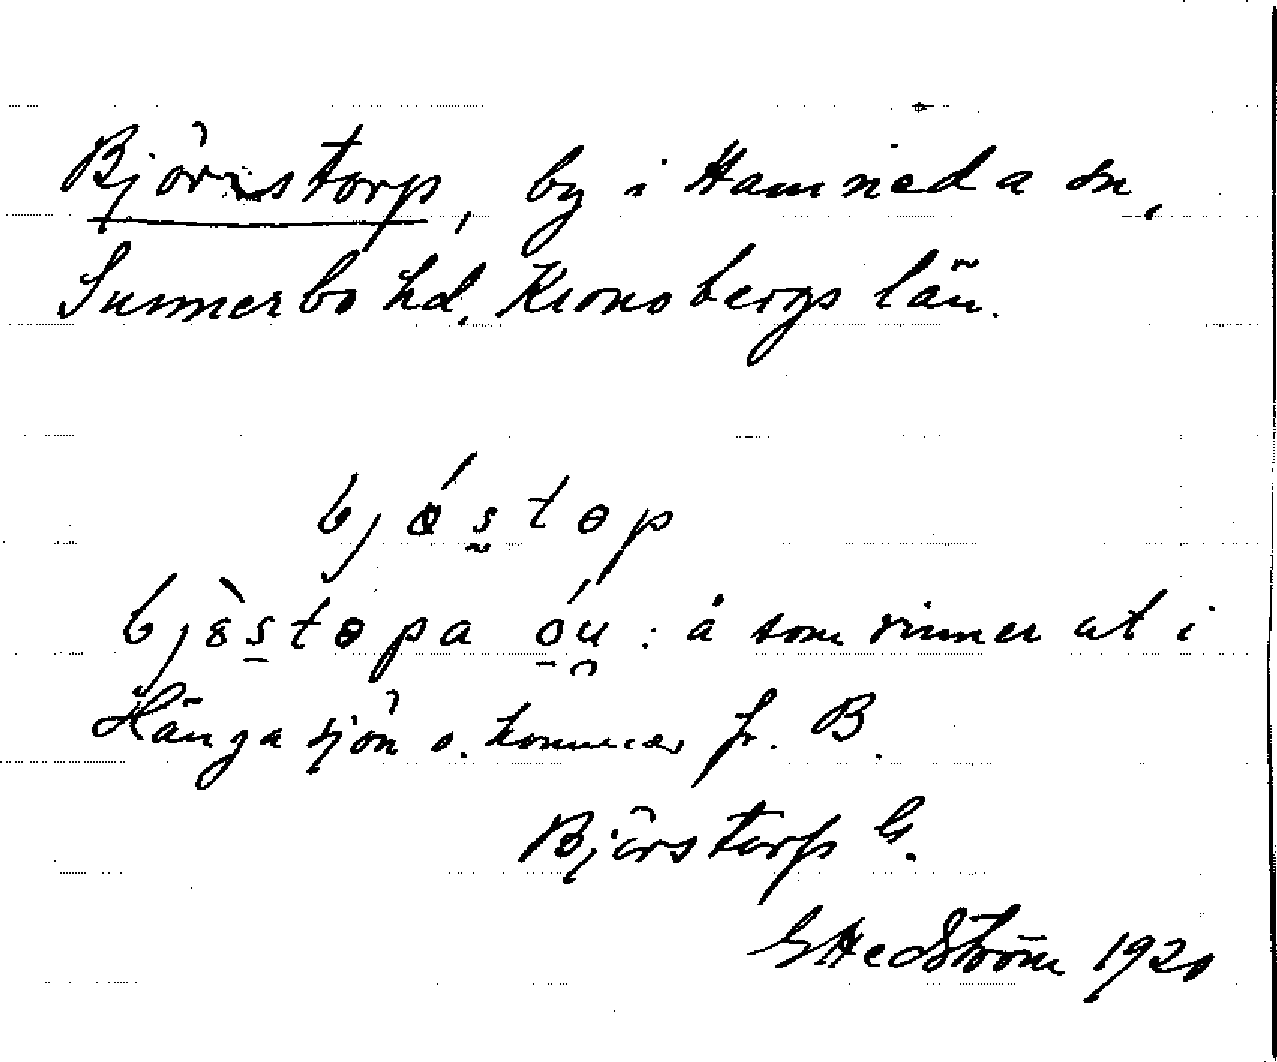 Björnstorp, by i Hamneda sn,
Sunnerbo hd, Kronobergs län.
bjǿs̰tɵp
bjɞ̀s̠tɵpa o̠̍u̯ : å som rinner ut i
Hängasjön o. kommer fr. B.
Björstorp G.
G Hedström 1920